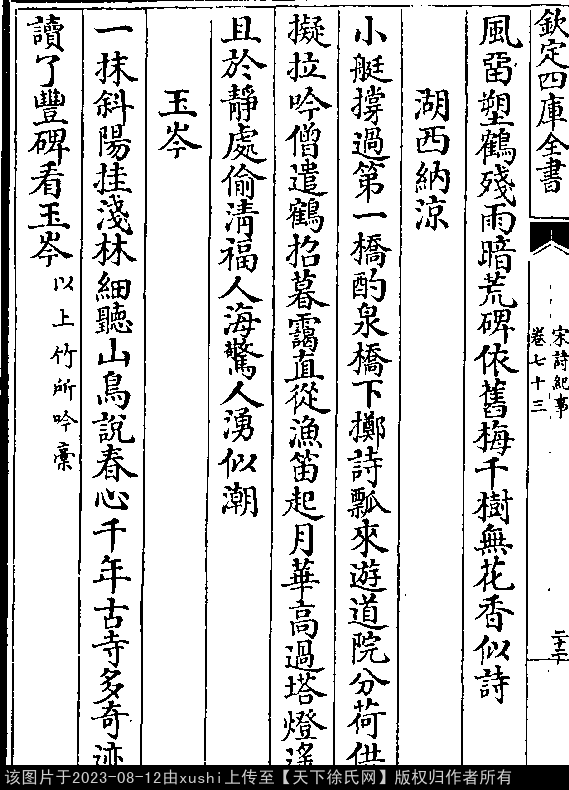 欽定四庫全書
宋詩紀事
卷七十三
風罶塑鶴殘雨暗荒碑依舊梅千樹無花香似詩
湖西納涼
小艇撐過第一橋酌泉橋下擲詩瓢來遊道院分荷供
擬拉吟僧遣鶴招暮靄直從漁笛起月華高過塔燈遙
且於靜處偷清福人海驚人湧似潮
玉岑
一抹斜陽挂淺林細聽山鳥說春心千年古寺多奇迹
讀了豐碑看玉岑以上竹所吟稾
该图片于2023-08-12由xushi上传至【天下徐氏网】版权归作者所有